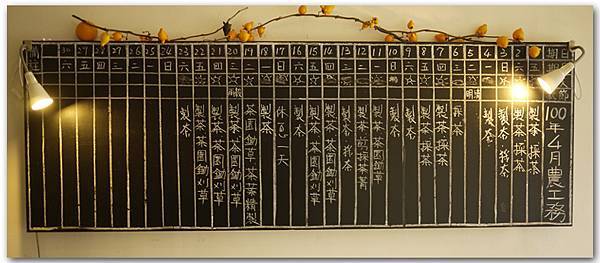 100年4月農工務
1 五 製茶 採茶
2 六 製茶 採茶
3 日 製茶 採茶
4 一 製茶
5 二 清明
6 三 採茶
7 四 製茶 採茶
8 五 製茶 採茶
9 六 製茶
10 日 製茶
11 一 製茶 茶園鋤草
12 二 製茶 剪採茶菁
13 三 製茶 採茶
14 四 製茶 茶園鋤草
15 五 製茶 茶園鋤草
16 六 製茶
17 日 休息一天
18 一 製茶
19 二 茶園鋤草 茶葉精製
20 三 穀雨 製茶 茶園鋤刈草
21 四 製茶 茶園鋤刈草
22 五 製茶 茶園鋤刈草
23 六 製茶
24 日
25 一
26 二
27 三
28 四
29 五
30 六